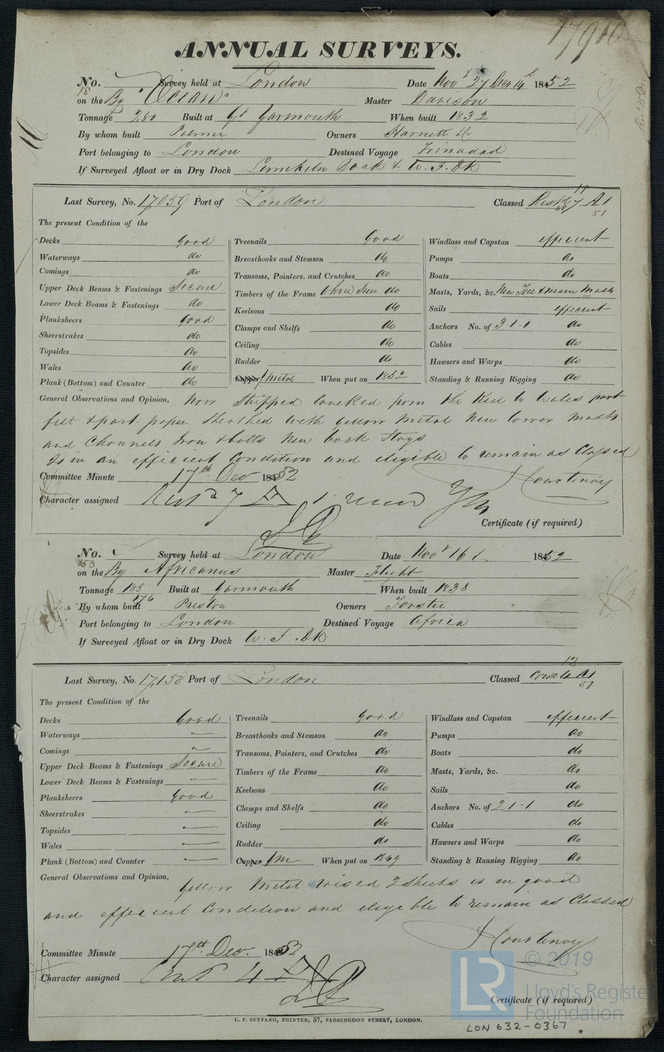 17910
ANNUAL SURVEYS.
No. Survey held at London Date Nov 27 Dec 14 1852
on the Bg "Ocean" Master Davison
Tonnage 280 Built at Gt Yarmouth When built 1832
By whom built Palmer Owners Harnett &
Port belonging to London Destined Voyage Trinadad
If Surveyed Afloat or in Dry Dock Limekiln Dock & W. I. Dk
Last Survey, No. 17059 Port of London Classed 7 A1 51
The present Condition of the
Decks Good Treenails Good Windlass and Capstan efficient
Waterways do Breasthooks and Stemson do Pumps do
Comings do Transoms, Pointers, and Crutches do Boats do
Upper Deck Beams & Fastenings Secure Timbers of the Frame where seen do Masts, Yards, &c. New Fore & Main Masts
Lower Deck Beams & Fastenings do Keelsons do Sails efficient
Planksheers Good Clamps and Shelfs do Anchors No. of 3.1.1 do
Sheerstrakes do Ceiling do Cables do
Topsides do Rudder do Hawsers and Warps do
Wales do Copper / Metal When put on 1852 Standing & Running Rigging do
Plank (Bottom) and Counter do
General Observations and Opinion, Now stripped caulked from the Keel to Wales part
felt & part paper sheathed with yellow Metal New lower masts
and Channels Iron & bolts New back Stays
Is in an efficient Condition and eligible to remain as Classed
Committee Minute 17th Dec 1852 J Courtenay
Character assigned
Certificate (if required)
No. Survey held at London Date Nov 16 1852
on the Bg Africanus Master Flight
Tonnage 185 176 Built at Yarmouth When built 1838
By whom built Preston Owners Forster
Port belonging to London Destined Voyage Africa
If Surveyed Afloat or in Dry Dock W. I. Dk
Last Survey, No. 17158 Port of London Classed A1
The present Condition of the
Decks Good Treenails good Windlass and Capstan efficient
Waterways Breasthooks and Stemson do Pumps do
Comings Transoms, Pointers, and Crutches do Boats do
Upper Deck Beams & Fastenings Secure Timbers of the Frame do Masts, Yards, &c. do
Lower Deck Beams & Fastenings Keelsons do Sails do
Planksheers Good Clamps and Shelfs do Anchors No. of 2.1.1 do
Sheerstrakes Ceiling do Cables do
Topsides Rudder do Hawsers and Warps do
Wales Copper When put on 1849 Standing & Running Rigging do
Plank (Bottom) and Counter
General Observations and Opinion, Yellow Metal raised 2 Sheets is in good
and efficient Condition and eligible to remain as Classed
J Courtenay
Committee Minute 17th Dec. 1852
Character assigned Cont 4
Certificate (if required)
C. F. SEYFANG, PRINTER, 57, FARRINGDON STREET, LONDON.
LR © 2019
Lloyd's Register
Foundation
LON 632-0367